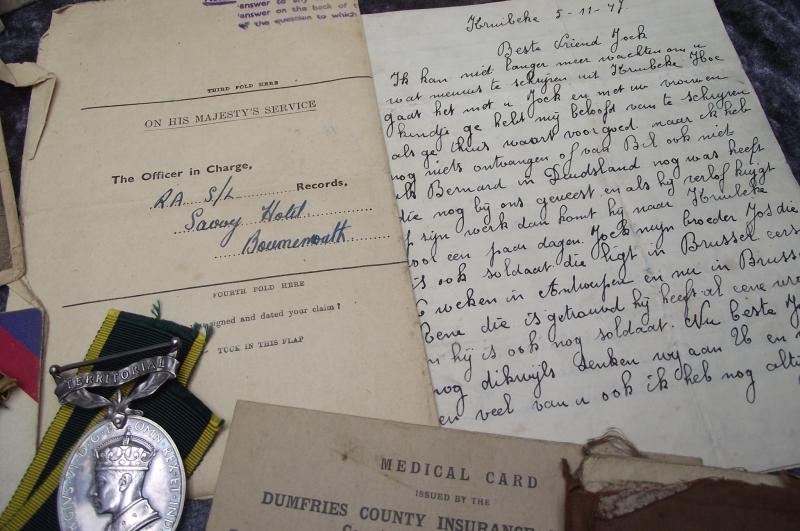 answer to any
answer on the back of t
of the question to which
THIRD FOLD HERE
ON HIS MAJESTY'S SERVICE
The Officer in Charge,
RA S/L Records,
Savoy Hotel
Bournemouth
FOURTH FOLD HERE
signed and dated your claim?
TUCK IN THIS FLAP
TERRITORIAL
OMN REX ET IND
MEDICAL CARD
ISSUED BY THE
DUMFRIES COUNTY INSURANCE
Kruibeke 5-11-47
Beste Vriend Jock
Ik kan niet langer meer wachten om u
wat nieuws te schrijven uit Kruibeke Hoe
gaat het met u Jock en met uw vrouw en
kindje ge hebt mij beloofd van te schrijven
als ge thuis waart voor goed. maar ik heb
nog niets ontvangen of van Bil ook niet
Bernard in Duidsland nog was heeft
die nog bij ons geweest en als hij verlof krijgt
sijn werk dan komt hij naar Kruibeke
voor een paar dagen. Jock mijn broeder Jos die
is ook soldaat die ligt in Brussel eers
weken in Antwerpen en nu in Brusse
bene die is getrouwd hij heeft al eene
hij is ook nog soldaat. Nu beste J
nog dikwijls denken wij aan U en
en veel van u ook ik heb nog alti